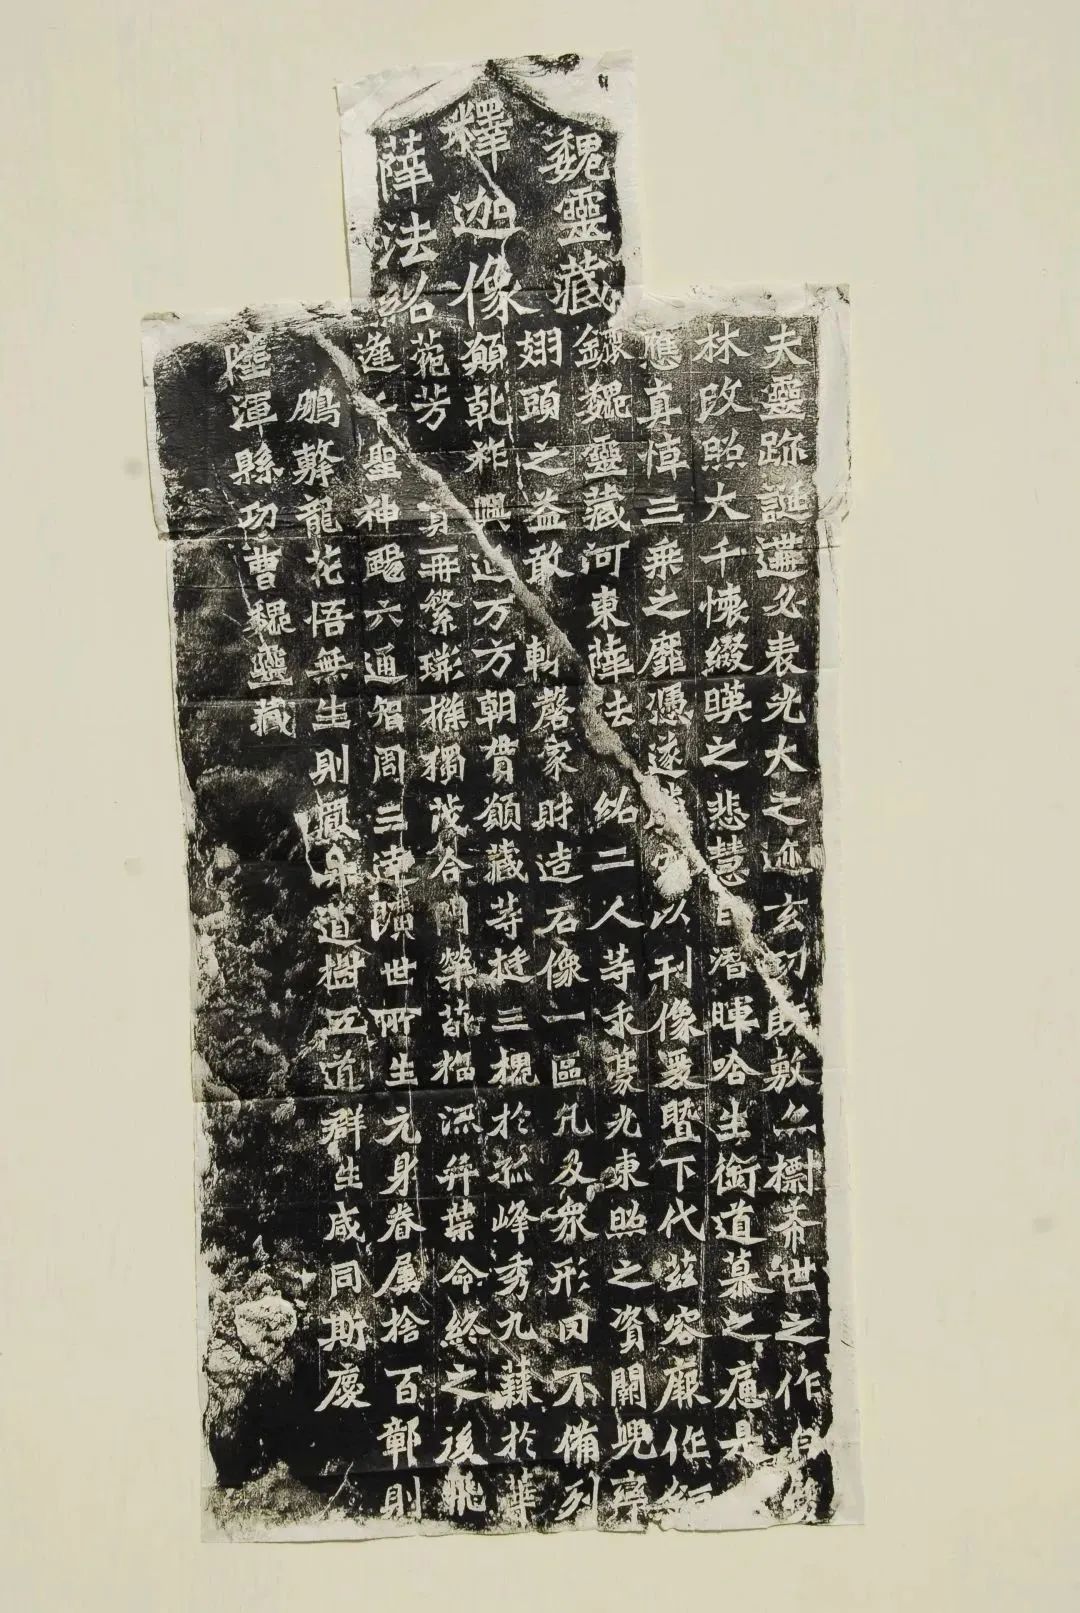 魏靈藏
釋迦像
薛法紹
夫靈跡誕遘必表光大之迹玄功既敷亦標希世之作自雙
林改照大千懷綴暎之悲慧日潛暉哈生銜道慕之痛是
應真悼三乘之靡憑遂空以刊像爰暨下代茲容厥作鉅
鏕魏靈藏河東薛法紹二人等求豪光東照之資闕兜率
翅頭之益敢輒罄家財造石像一區凡及眾形罔不備列
願乾祚興延万方朝貫願藏等挺三槐於孤峰秀九蕀於華
菀芳實再繁獨茂合門榮葩福流弈葉命終之後飛
逢千聖神颺六通智周三達曠世所生元身眷屬捨百鄣則
鵬擊龍花悟無生則鳳昇道樹五道群生咸同斯慶
陸渾縣功曹魏靈藏